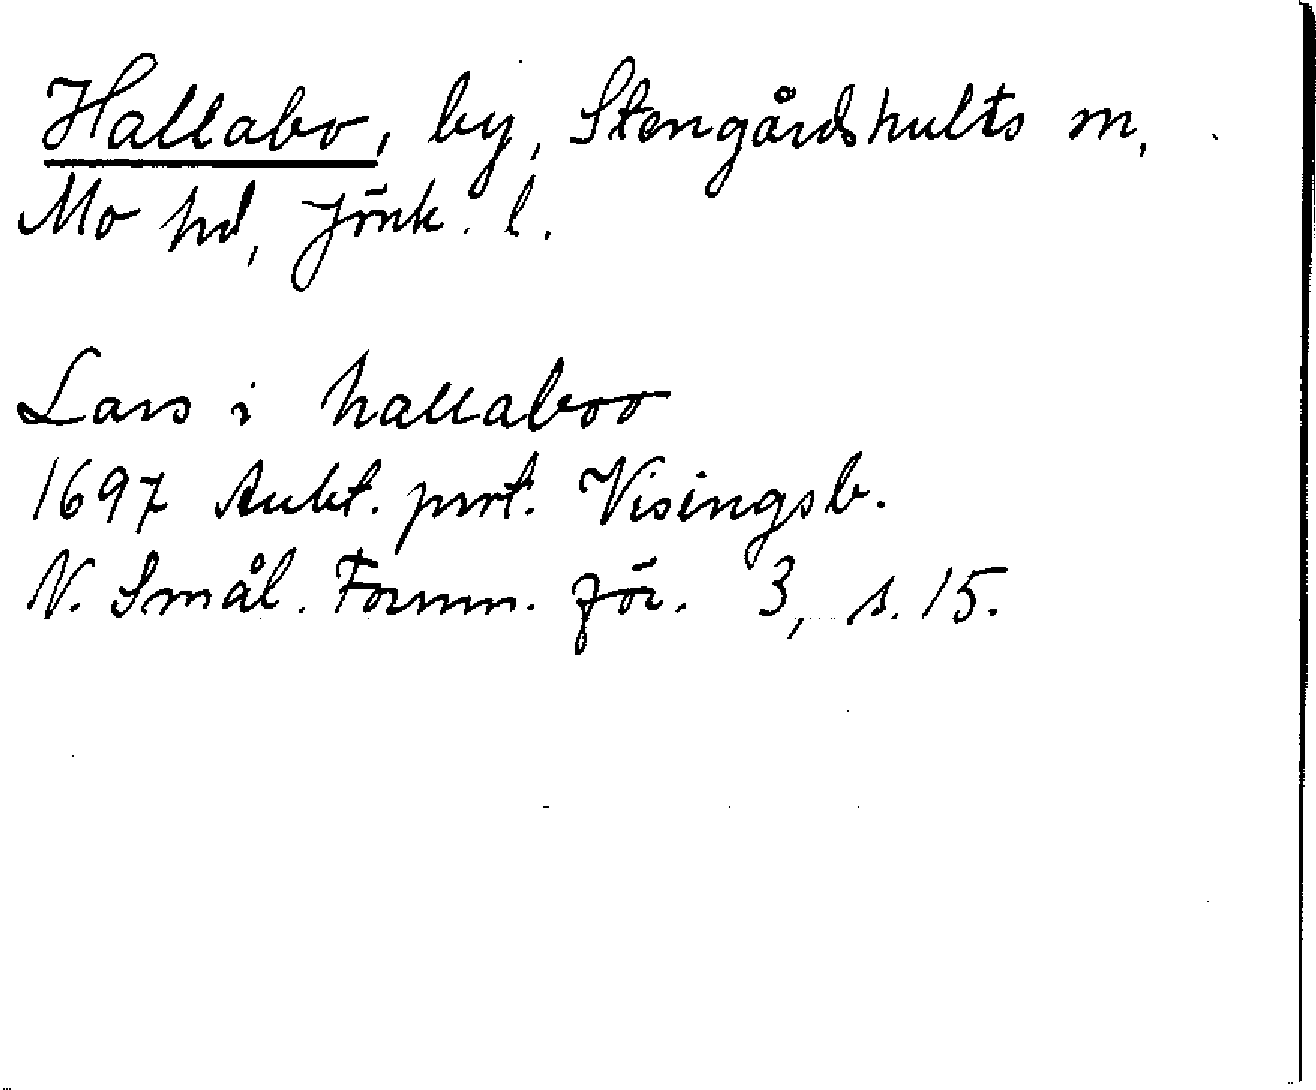 Hallabo, by, Stengårdshults sn,
Mo hd, Jönk. l.
Lars i hallaboo
1697 Aukt. prot. Visingsb.
N. Smål. Fornm. för. 3, s. 15.